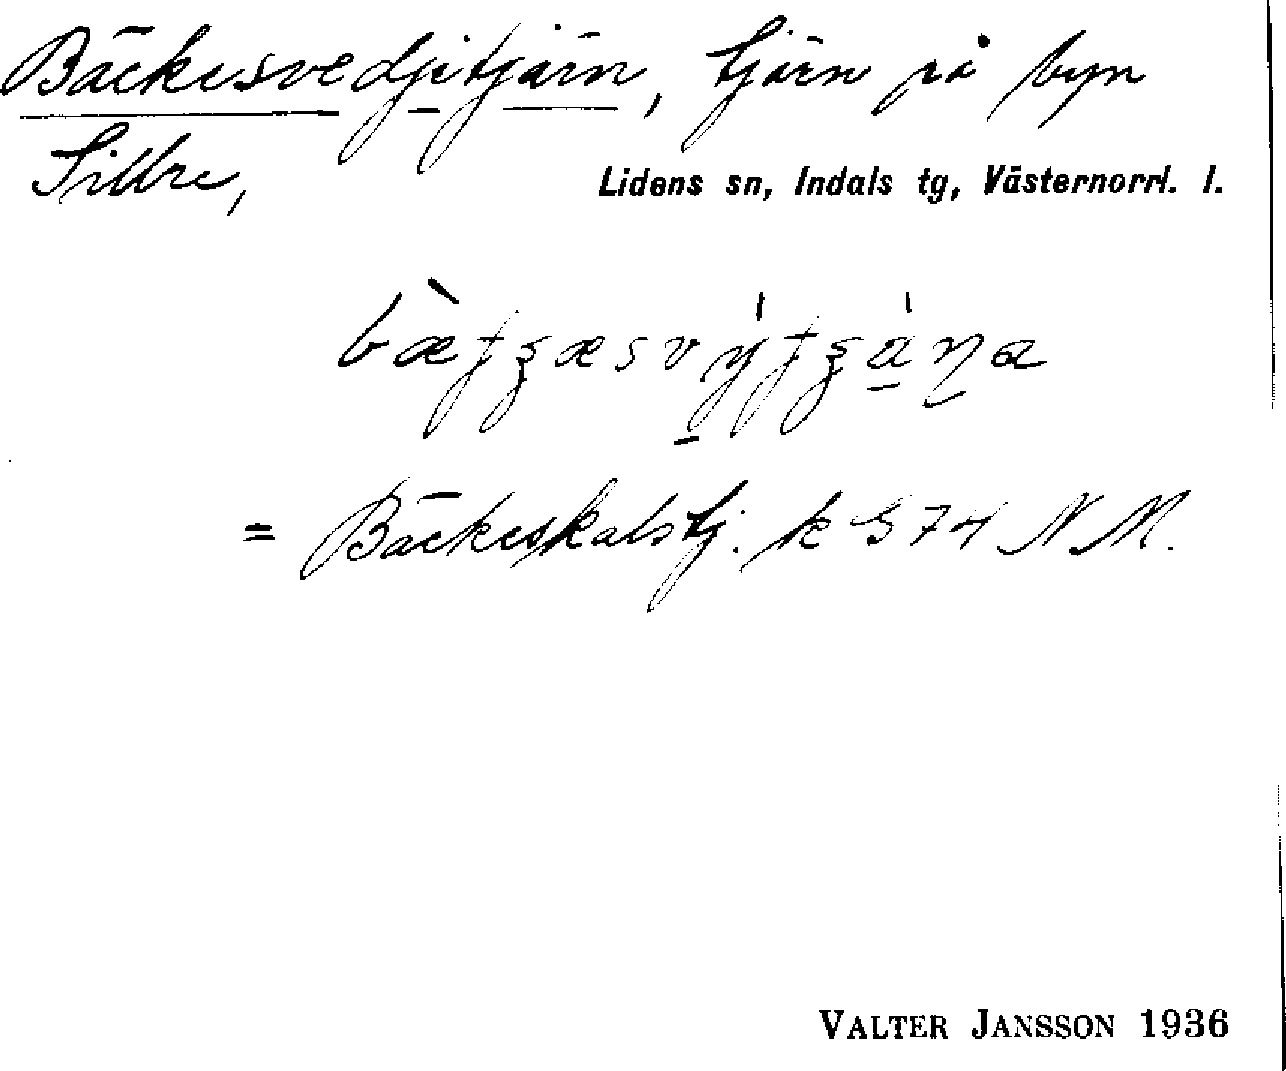 Bäckesvedjitjärn, tjärn på byn
Sillre,
Lidens sn, Indals tg, Västernorrl. l.
= Bäckeskalstj. k 574 NM.
VALTER JANSSON 1936